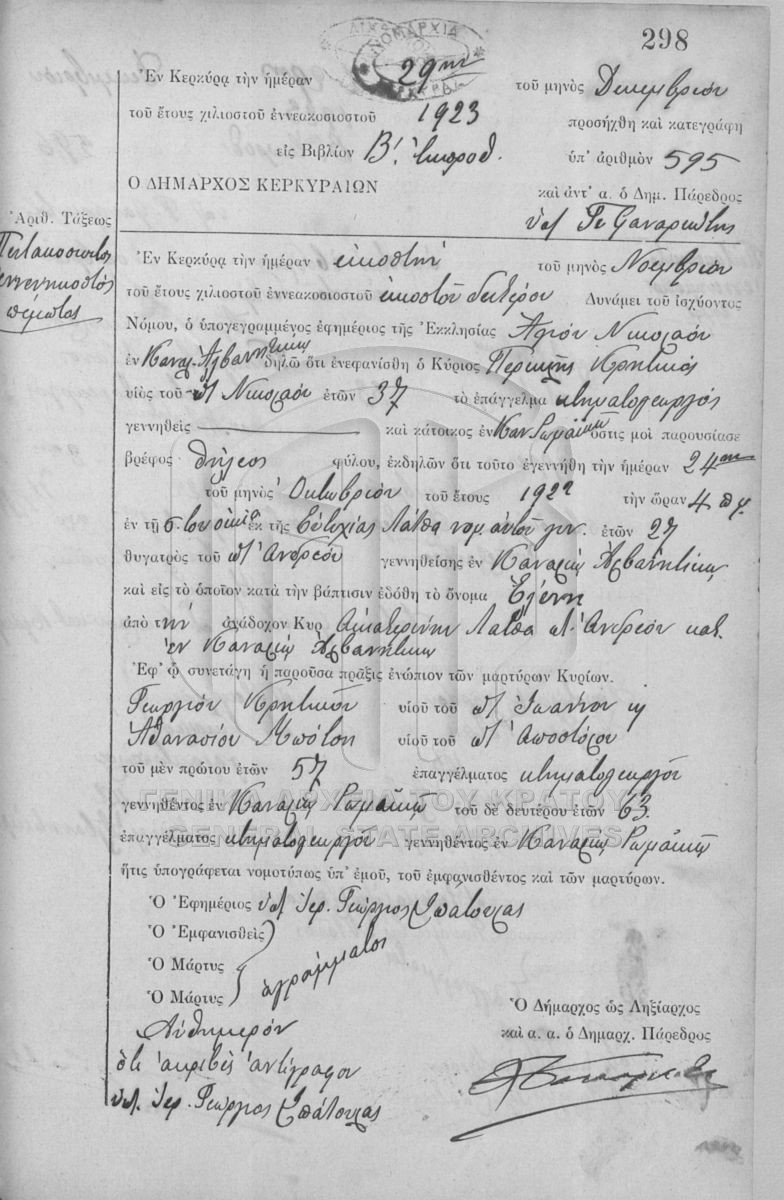 298
ΝΟΜΑΡΧΙΑ
Ἐν Κερκύρᾳ τὴν ἡμέραν 29ην τοῦ μηνὸς Δεκεμβρίου
τοῦ ἔτους χιλιοστοῦ ἐννεακοσιοστοῦ 1923 προσήχθη καὶ κατεγράφη
εἰς Βιβλίον Β! ἐκπροθ. ὑπ' ἀριθμὸν 595
Ο ΔΗΜΑΡΧΟΣ ΚΕΡΚΥΡΑΙΩΝ καὶ ἀντ' α. ὁ Δημ. Πάρεδρος
Ἀριθ. Τάξεως
Πεντακοσιοστὸς
ἐννενηκοστὸς
πέμπτος
Ἐν Κερκύρᾳ τὴν ἡμέραν εἰκοστὴν τοῦ μηνὸς Νοεμβρίου
τοῦ ἔτους χιλιοστοῦ ἐννεακοσιοστοῦ εἰκοστοῦ δευτέρου Δυνάμει τοῦ ἰσχύοντος
Νόμου, ὁ ὑπογεγραμμένος ἐφημέριος τῆς Ἐκκλησίας Ἁγίου Νικολάου
ἐν Καναλ. Ἀρβανιτικης δηλῶ ὅτι ἐνεφανίσθη ὁ Κύριος Περικλῆς Κρητικὸς
υἱὸς τοῦ π/ Νικολάου ἐτῶν 37 τὸ ἐπάγγελμα κτηματογεωργὸς
γεννηθεὶς καὶ κάτοικος ἐν Καν Ρωμαικ ὅστις μοὶ παρουσίασε
βρέφος θήλεος φύλου, ἐκδηλῶν ὅτι τοῦτο ἐγεννήθη τὴν ἡμέραν 24ην
τοῦ μηνὸς Ὀκτωβρίου τοῦ ἔτους 1922 τὴν ὥραν 4 πμ.
ἐν τῇ σ. του οἰκίᾳ ἐκ τῆς Εὐτυχίας Λάτθα νομ. αὐτοῦ γυν. ἐτῶν 27
θυγατρὸς τοῦ π/ Ἀνδρέου γεννηθείσης ἐν Καναλ. Ἀρβανιτικης
καὶ εἰς τὸ ὁποῖον κατὰ τὴν βάπτισιν ἐδόθη τὸ ὄνομα Ἑλένη
ἀπὸ τὴν ἀνάδοχον Κυρ Αἰκατερίνην Λάτθα π/ Ἀνδρέου κατ.
ἐν Καναλ. Ἀρβανιτικης
Ἐφ' ᾧ συνετάγη ἡ παροῦσα πρᾶξις ἐνώπιον τῶν μαρτύρων Κυρίων.
Γεωργίου Κρητικοῦ υἱοῦ τοῦ π/ Ἰωάννου κ
Ἀθανασίου Μπότση υἱοῦ τοῦ π/ Ἀποστόλου
τοῦ μὲν πρώτου ἐτῶν 57 ἐπαγγέλματος κτηματογεωργοῦ
γεννηθέντος ἐν Καναλ. Ρωμαικης τοῦ δὲ δευτέρου ἐτῶν 63
ἐπαγγέλματος κτηματογεωργοῦ γεννηθέντος ἐν Καναλ. Ρωμαικης
ἥτις ὑπογράφεται νομοτύπως ὑπ' ἐμοῦ, τοῦ ἐμφανισθέντος καὶ τῶν μαρτύρων.
Ὁ Ἐφημέριος Ἱερ. Γεώργιος Σπάτουλας
Ὁ Ἐμφανισθεὶς
Ὁ Μάρτυς ἀγράμματοι
Ὁ Μάρτυς
Αὐθημερόν
ὅτι ἀκριβὲς ἀντίγραφον
Ἱερ. Γεώργιος Σπάτουλας
Ὁ Δήμαρχος ὡς Ληξίαρχος
καὶ α. α. ὁ Δημαρχ. Πάρεδρος
ΓΕΝΙΚΑ ΑΡΧΕΙΑ ΤΟΥ ΚΡΑΤΟΥΣ
GENERAL STATE ARCHIVES